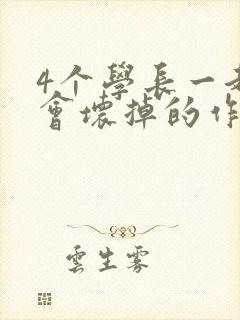 4个學長一
會壞掉的作
雲生雾